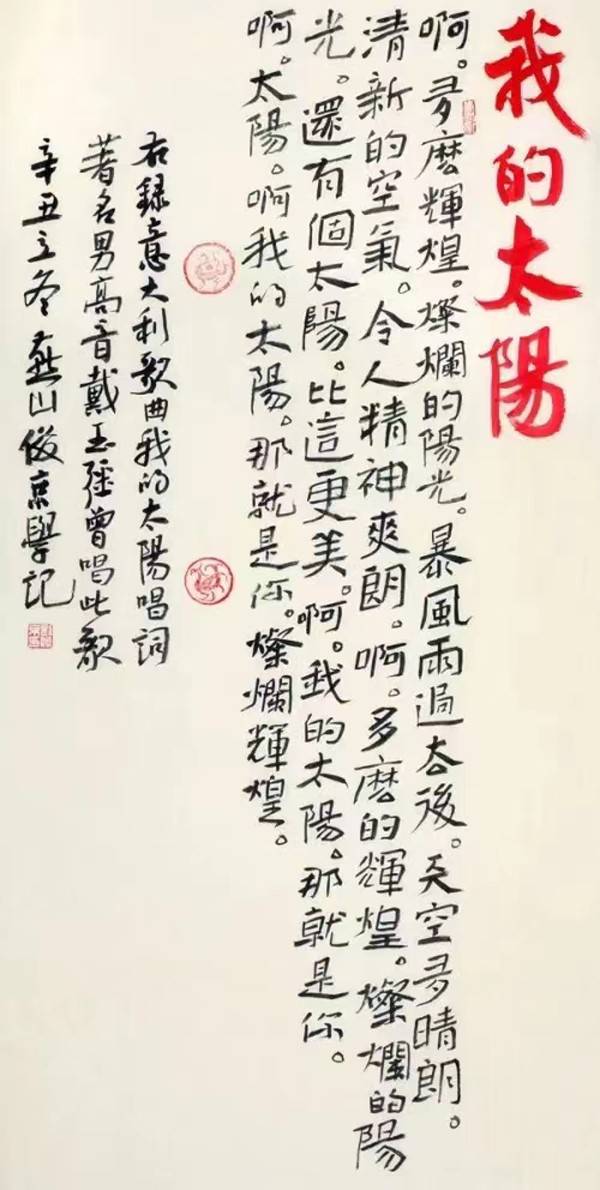 我的太陽
啊。多麼輝煌。燦爛的陽光。暴風雨過去後。天空多晴朗。
清新的空氣。令人精神爽朗。啊。多麼的輝煌。燦爛的陽
光。還有個太陽。比這更美。啊。我的太陽。那就是你。
啊。太陽。啊我的太陽。那就是你。燦爛輝煌。
右録意大利歌曲我的太陽唱詞
著名男高音戴玉强曾唱此歌
辛丑立冬燕山俊京學記